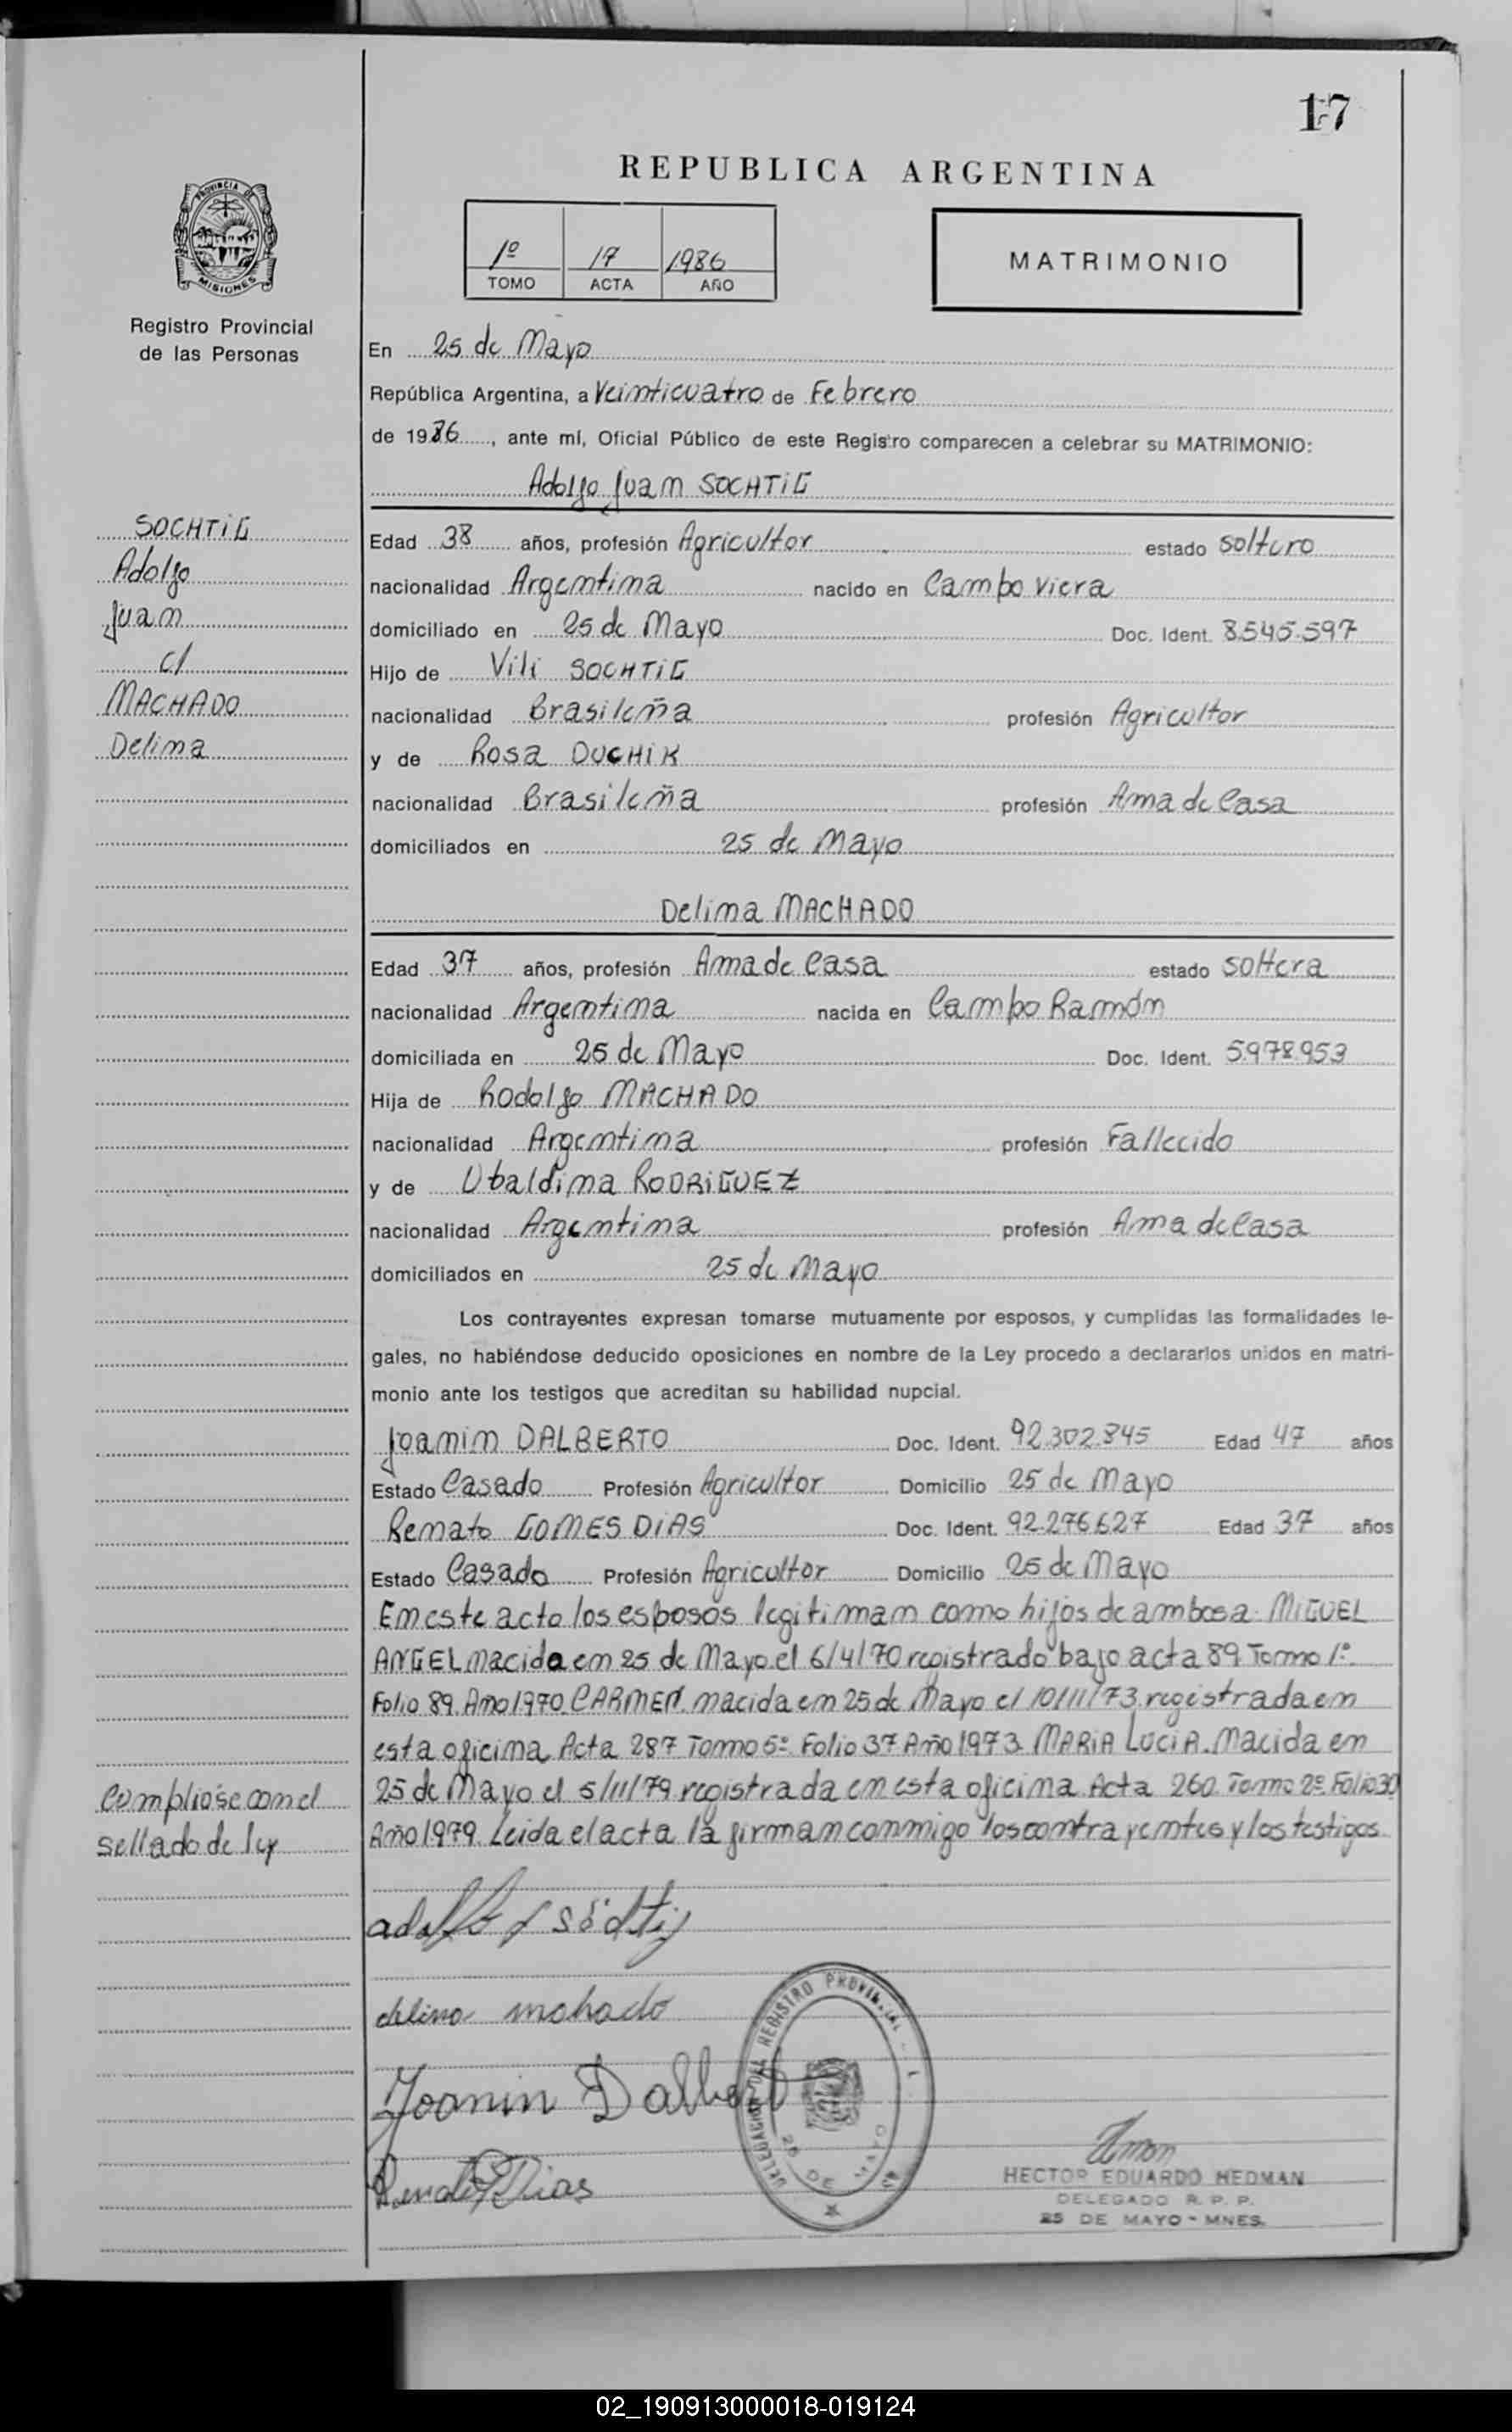 17
REPUBLICA ARGENTINA
1º 17 1986
TOMO ACTA AÑO
MATRIMONIO
PROVINCIA DE
MISIONES
Registro Provincial
de las Personas
En 25 de Mayo
República Argentina, a Veinticuatro de Febrero
de 1986, ante mí, Oficial Público de este Registro comparecen a celebrar su MATRIMONIO:
Adolfo Juan SOCHTIG
SOCHTIG
Adolfo
Juan
c/
MACHADO
Delima
Edad 38 años, profesión Agricultor estado soltero
nacionalidad Argentina nacido en Campo Viera
domiciliado en 25 de Mayo Doc. Ident. 8.545.597
Hijo de Vili SOCHTIG
nacionalidad Brasileña profesión Agricultor
y de Rosa DUCHIK
nacionalidad Brasileña profesión Ama de Casa
domiciliados en 25 de Mayo
Delima MACHADO
Edad 37 años, profesión Ama de Casa estado soltera
nacionalidad Argentina nacida en Campo Ramón
domiciliada en 25 de Mayo Doc. Ident. 5.978.953
Hija de Rodolfo MACHADO
nacionalidad Argentina profesión Fallecido
y de Ubaldina RODRIGUEZ
nacionalidad Argentina profesión Ama de Casa
domiciliados en 25 de Mayo
Los contrayentes expresan tomarse mutuamente por esposos, y cumplidas las formalidades le-
gales, no habiéndose deducido oposiciones en nombre de la Ley procedo a declararlos unidos en matri-
monio ante los testigos que acreditan su habilidad nupcial.
Joanin DALBERTO Doc. Ident. 92.302.845 Edad 47 años
Estado Casado Profesión Agricultor Domicilio 25 de Mayo
Renato GOMES DIAS Doc. Ident. 92.276.627 Edad 37 años
Estado Casado Profesión Agricultor Domicilio 25 de Mayo
En este acto los esposos legitiman como hijos de ambos a MIGUEL
ANGEL nacido en 25 de Mayo el 6/4/70 registrado bajo acta 89 Tomo 1º
Folio 89 Año 1970. CARMEN. nacida en 25 de Mayo el 10/11/73 registrada en
esta oficina Acta 287 Tomo 5º Folio 37 Año 1973 MARIA LUCIA. Nacida en
25 de Mayo el 5/11/79 registrada en esta oficina Acta 260 Tomo 2º Folio 30
Año 1979. Leida el acta la firman conmigo los contrayentes y los testigos.
Cumplióse con el
sellado de ley
adolfo J söchtig
delima mahado
Joanin Dalberto
Renato G Dias
DELEGACION DEL REGISTRO
25 DE MAYO
HECTOR EDUARDO HEDMAN
DELEGADO R. P. P.
25 DE MAYO - MNES.
02_190913000018-019124